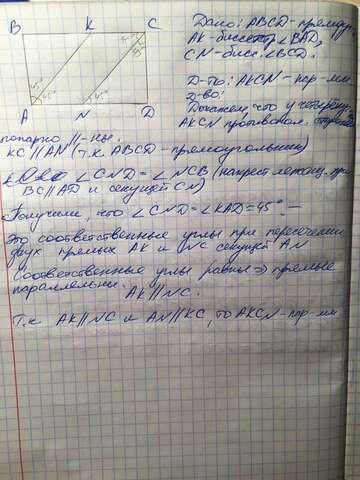 B K C
45°
45°
45° 45°
A N D
Дано: ABCD - прямоуг.
AK - биссектр ∠BAD,
CN - бисс. ∠BCD.
Д-ть: AKCN - пар-мм
Д-во:
Докажем, что у четырёх.
AKCN противопол. стороны
попарно ||-ны.
KC || AN (т.к. ABCD - прямоугольник)
∠CND = ∠NCB (накрест лежащ. при
BC || AD и секущей CN)
Получили, что ∠CND = ∠KAD = 45° —
Это соответственные углы при пересечении
двух прямых AK и NC секущей AN
Соответственные углы равны => прямые
параллельны.
AK || NC.
Т.к AK || NC и AN || KC, то AKCN - пар-мм